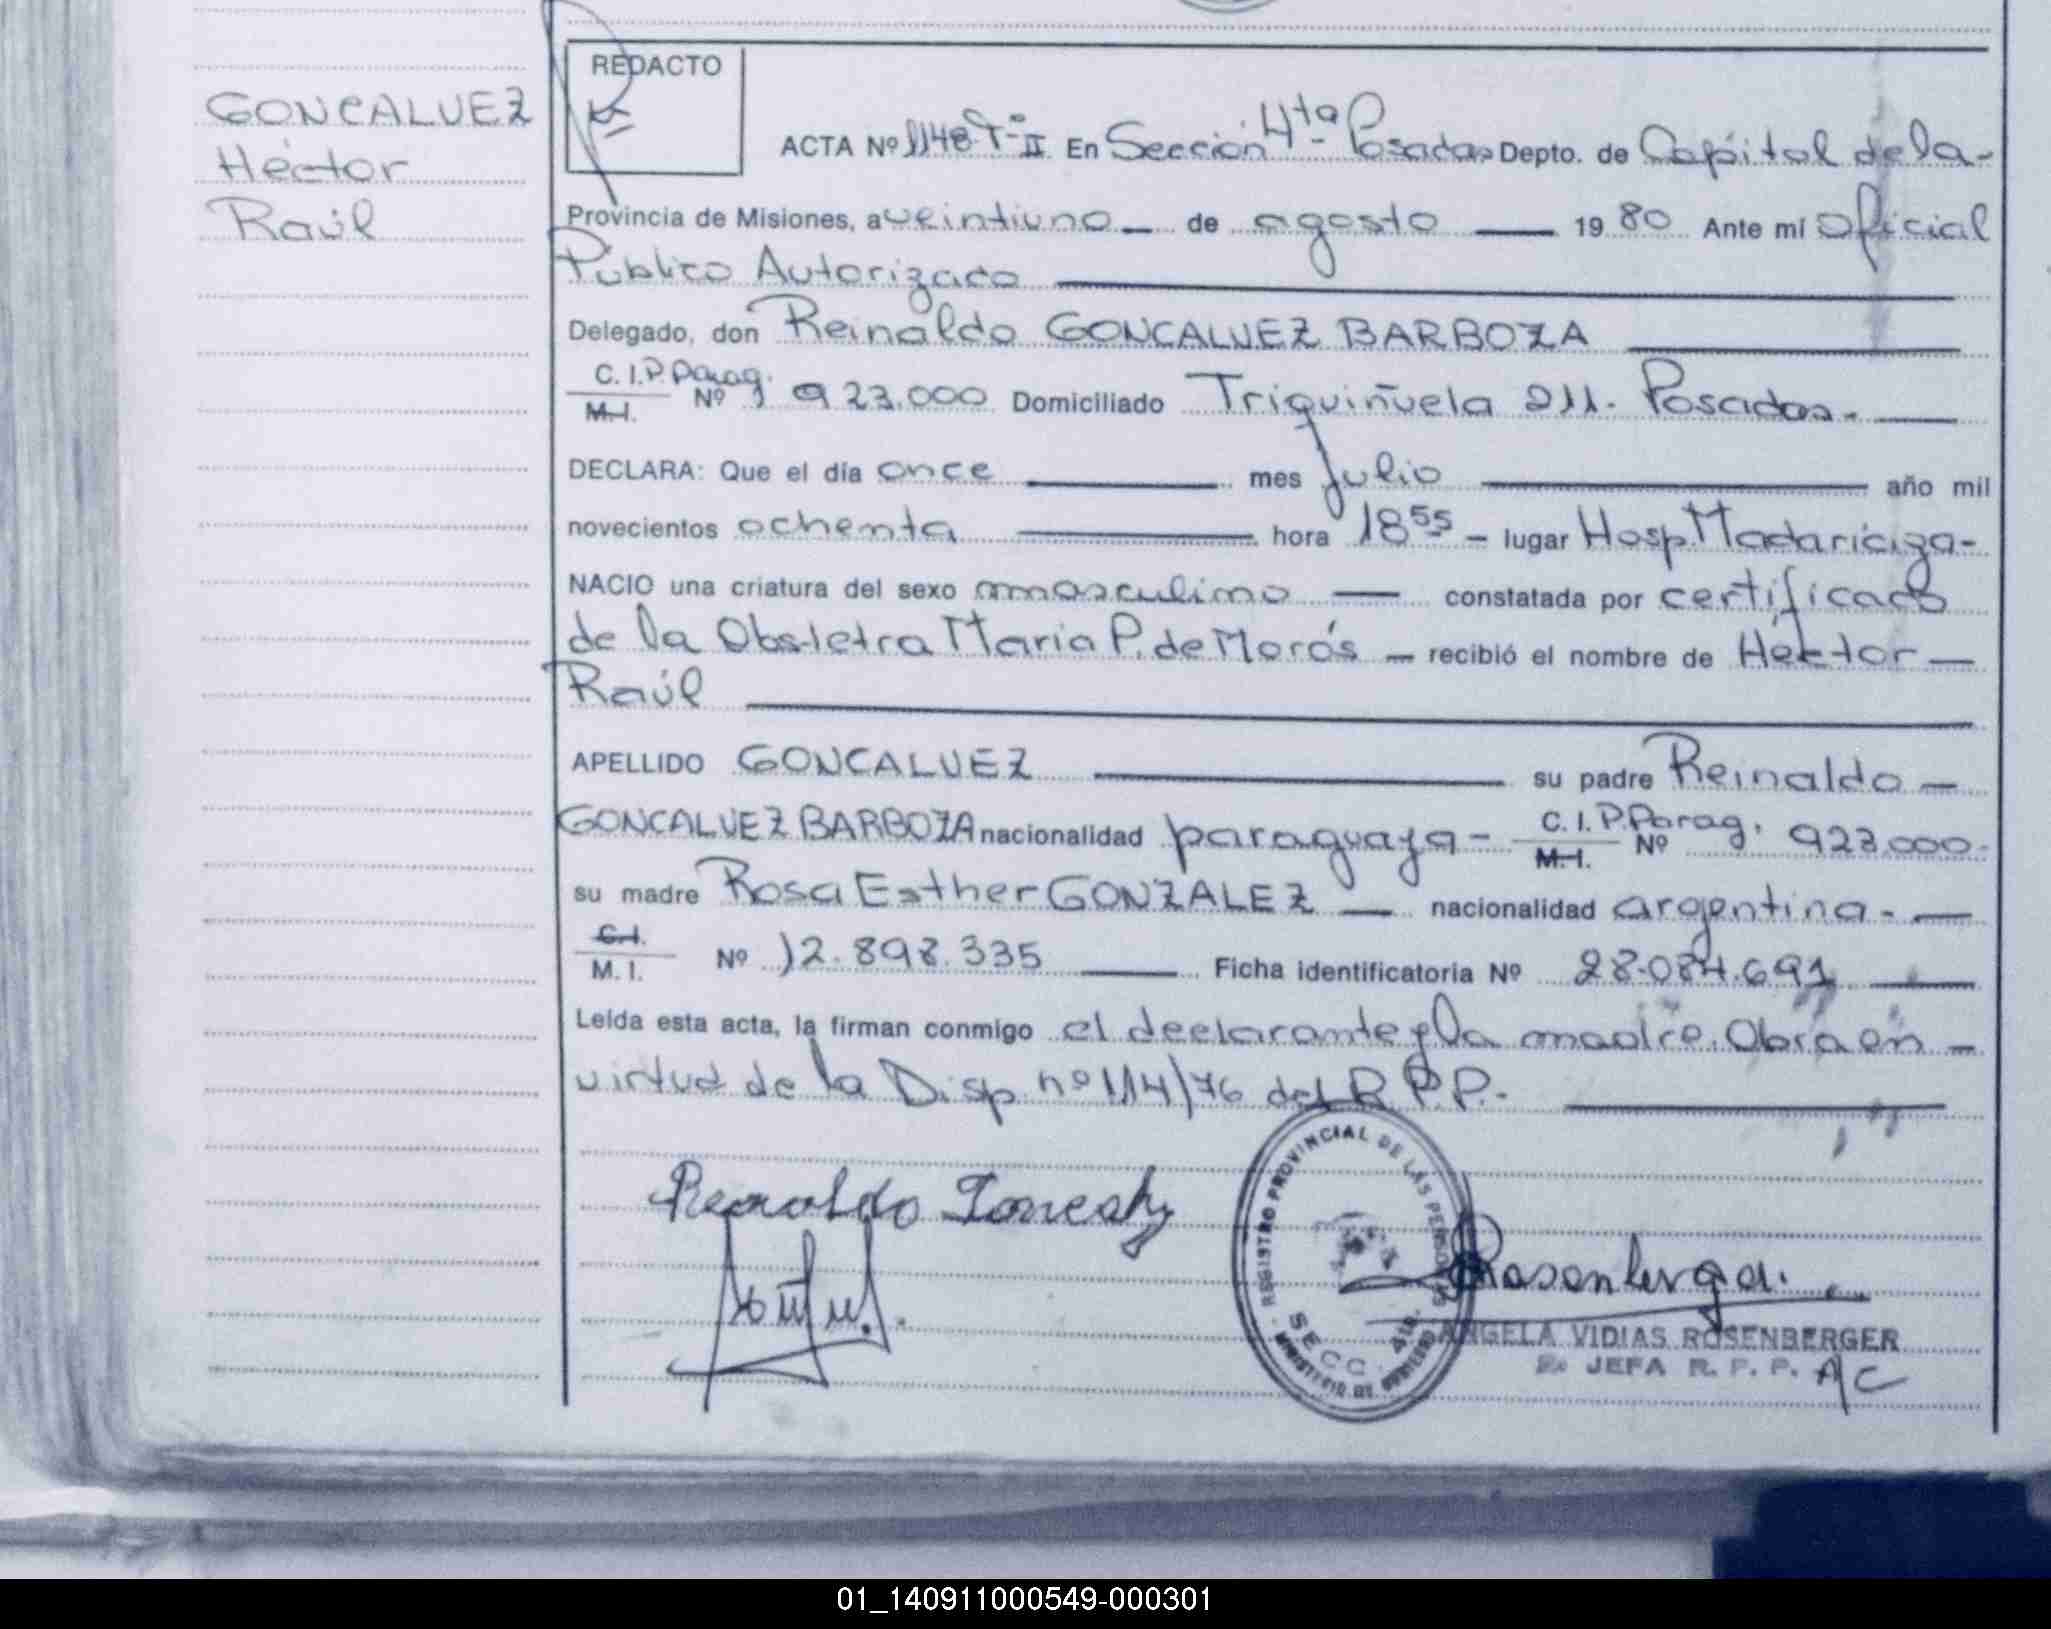 GONCALVEZ
Héctor
Raúl
REDACTO
ACTA Nº 1148 Tº II En Sección 4ta Posadas Depto. de Capital de la-
Provincia de Misiones, a veintiuno — de agosto — 1980 Ante mí Oficial
Público Autorizado
Delegado, don Reinaldo GONCALVEZ BARBOZA
C.I.P. Parag.
M.I. Nº 923.000 Domiciliado Triquiñuela 211. Posadas.-
DECLARA: Que el día once mes julio año mil
novecientos ochenta hora 18 55 - lugar Hosp. Madariaga-
NACIO una criatura del sexo masculino — constatada por certificado
de la Obstetra María P. de Morás — recibió el nombre de Héctor —
Raúl
APELLIDO GONCALVEZ su padre Reinaldo —
GONCALVEZ BARBOZA nacionalidad paraguaya - C.I.P. Parag. M.I. Nº 923.000-
su madre Rosa Esther GONZALEZ — nacionalidad argentina.-
C.I.
M.I. Nº 12.898.335 Ficha identificatoria Nº 28.084.691
Leída esta acta, la firman conmigo el declarante y la madre. Obra en —
virtud de la Disp. nº 114/76 del R.P.P.-
Reinaldo
REGISTRO PROVINCIAL DE LAS PERSONAS
SECC. 4ta.
MINISTERIO DE GOBIERNO
ANGELA VIDIAS ROSENBERGER
JEFA R. P. P. A/C
01_140911000549-000301